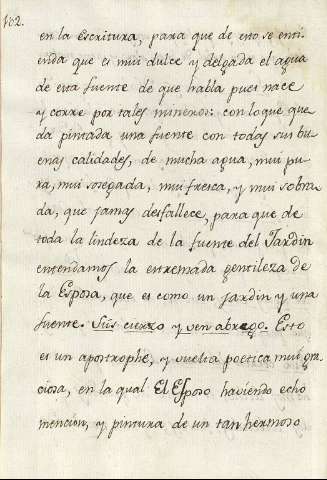 162.
en la escritura, para que de esto se enti-
enda que es mui dulce y delgada el agua
de esta fuente de que habla pues nace
y corre por tales mineros: con lo que que
da pintada una fuente con todas sus bu
enas calidades, de mucha agua, mui pu-
ra, mui sosegada, mui fresca, y mui sobra
da, que jamas desfallece, para que de
toda la lindeza de la fuente del Jardin
entendamos la extremada gentileza de
la Esposa, que es como un jardin y una
fuente. Sus cierzo y ven abrego. Esto
es un apostrophe, y vuelta poetica mui gra
ciosa, en la qual El Esposo haviendo echo
mencion, y pintura de un tan hermoso